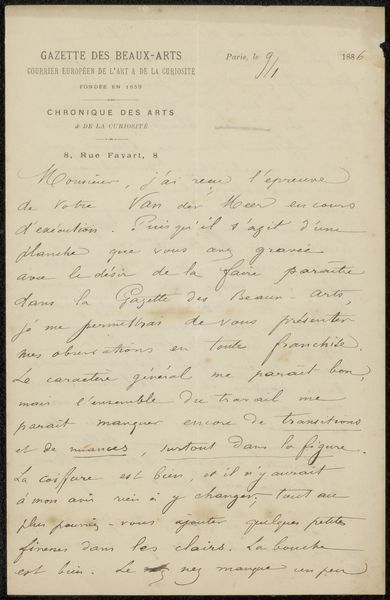 GAZETTE DES BEAUX-ARTS
COURRIER EUROPÉEN DE L'ART & DE LA CURIOSITÉ
FONDÉE EN 1859
CHRONIQUE DES ARTS
& DE LA CURIOSITÉ
8, Rue Favart, 8
Paris, le 9/1 1886
Monsieur, j'ai reçu l'épreuve
de votre Van der Meer en cours
d'exécution. Puisqu'il s'agit d'une
planche que vous avez gravée
avec le désir de la faire paraître
dans la Gazette des Beaux-Arts,
je me permettrai de vous présenter
mes observations en toute franchise.
Le caractère général me paraît bon,
mais l'ensemble du travail me
paraît manquer encore de transitions
et de nuances, surtout dans la figure.
La coiffure est bien, et il n'y aurait
à mon avis rien à y changer; tout au
plus pourriez-vous ajouter quelques petites
finesses dans les clairs. La bouche
est bien. Le nez manque un peu